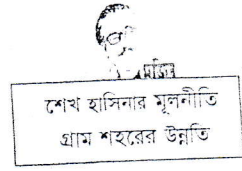 শেখ হাসিনার মূলনীতি
গ্রাম শহরের উন্নতি